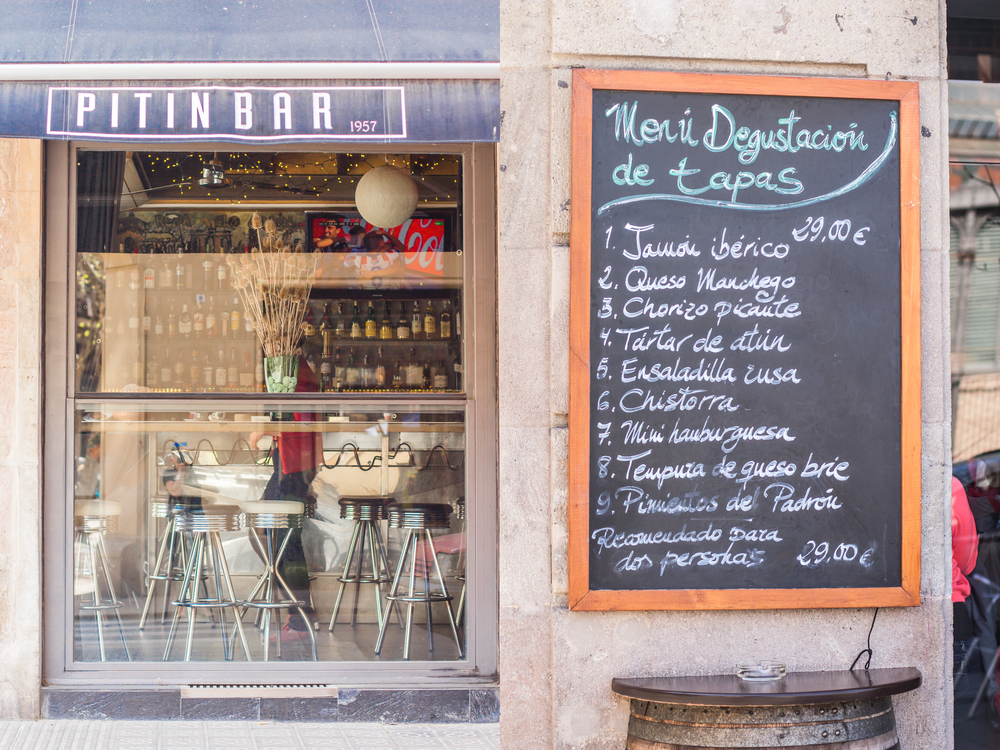 PITIN BAR
1957
Menú Degustación
de tapas
29,00 €
1. Jamón ibérico
2. Queso Manchego
3. Chorizo picante
4. Tártar de atún
5. Ensaladilla rusa
6. Chistorra
7. Mini hamburguesa
8. Tempura de queso brie
9. Pimientos del Padrón
Recomendado para
dos personas 29,00 €